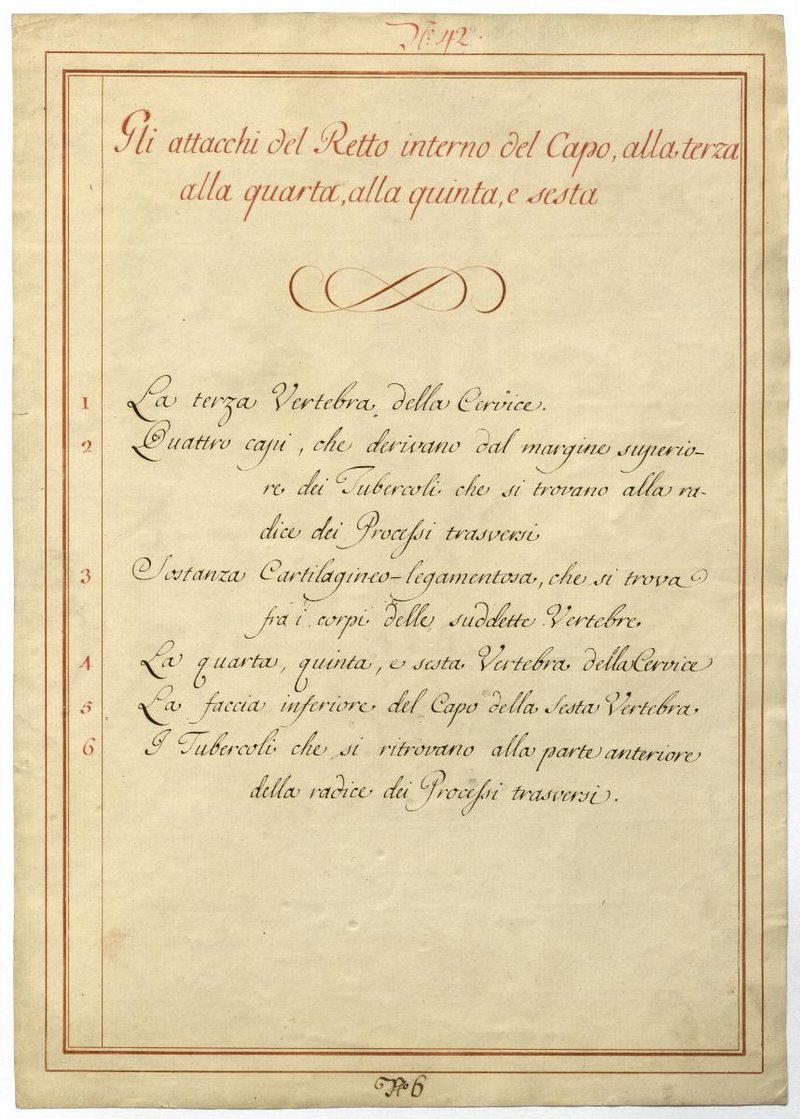 No. 42.
Gli attacchi del Retto interno del Capo, alla terza
alla quarta, alla quinta, e sesta
1 La terza Vertebra della Cervice.
2 Quattro capi, che derivano dal margine superio-
re dei Tubercoli che si trovano alla ra-
dice dei Processi trasversi
3 Sostanza Cartilagineo-legamentosa, che si trova
fra i corpi delle suddette Vertebre
4 La quarta, quinta, e sesta Vertebra della Cervice
5 La faccia inferiore del Capo della Sesta Vertebra
6 I Tubercoli che si ritrovano alla parte anteriore
della radice dei Processi trasversi.
No 6